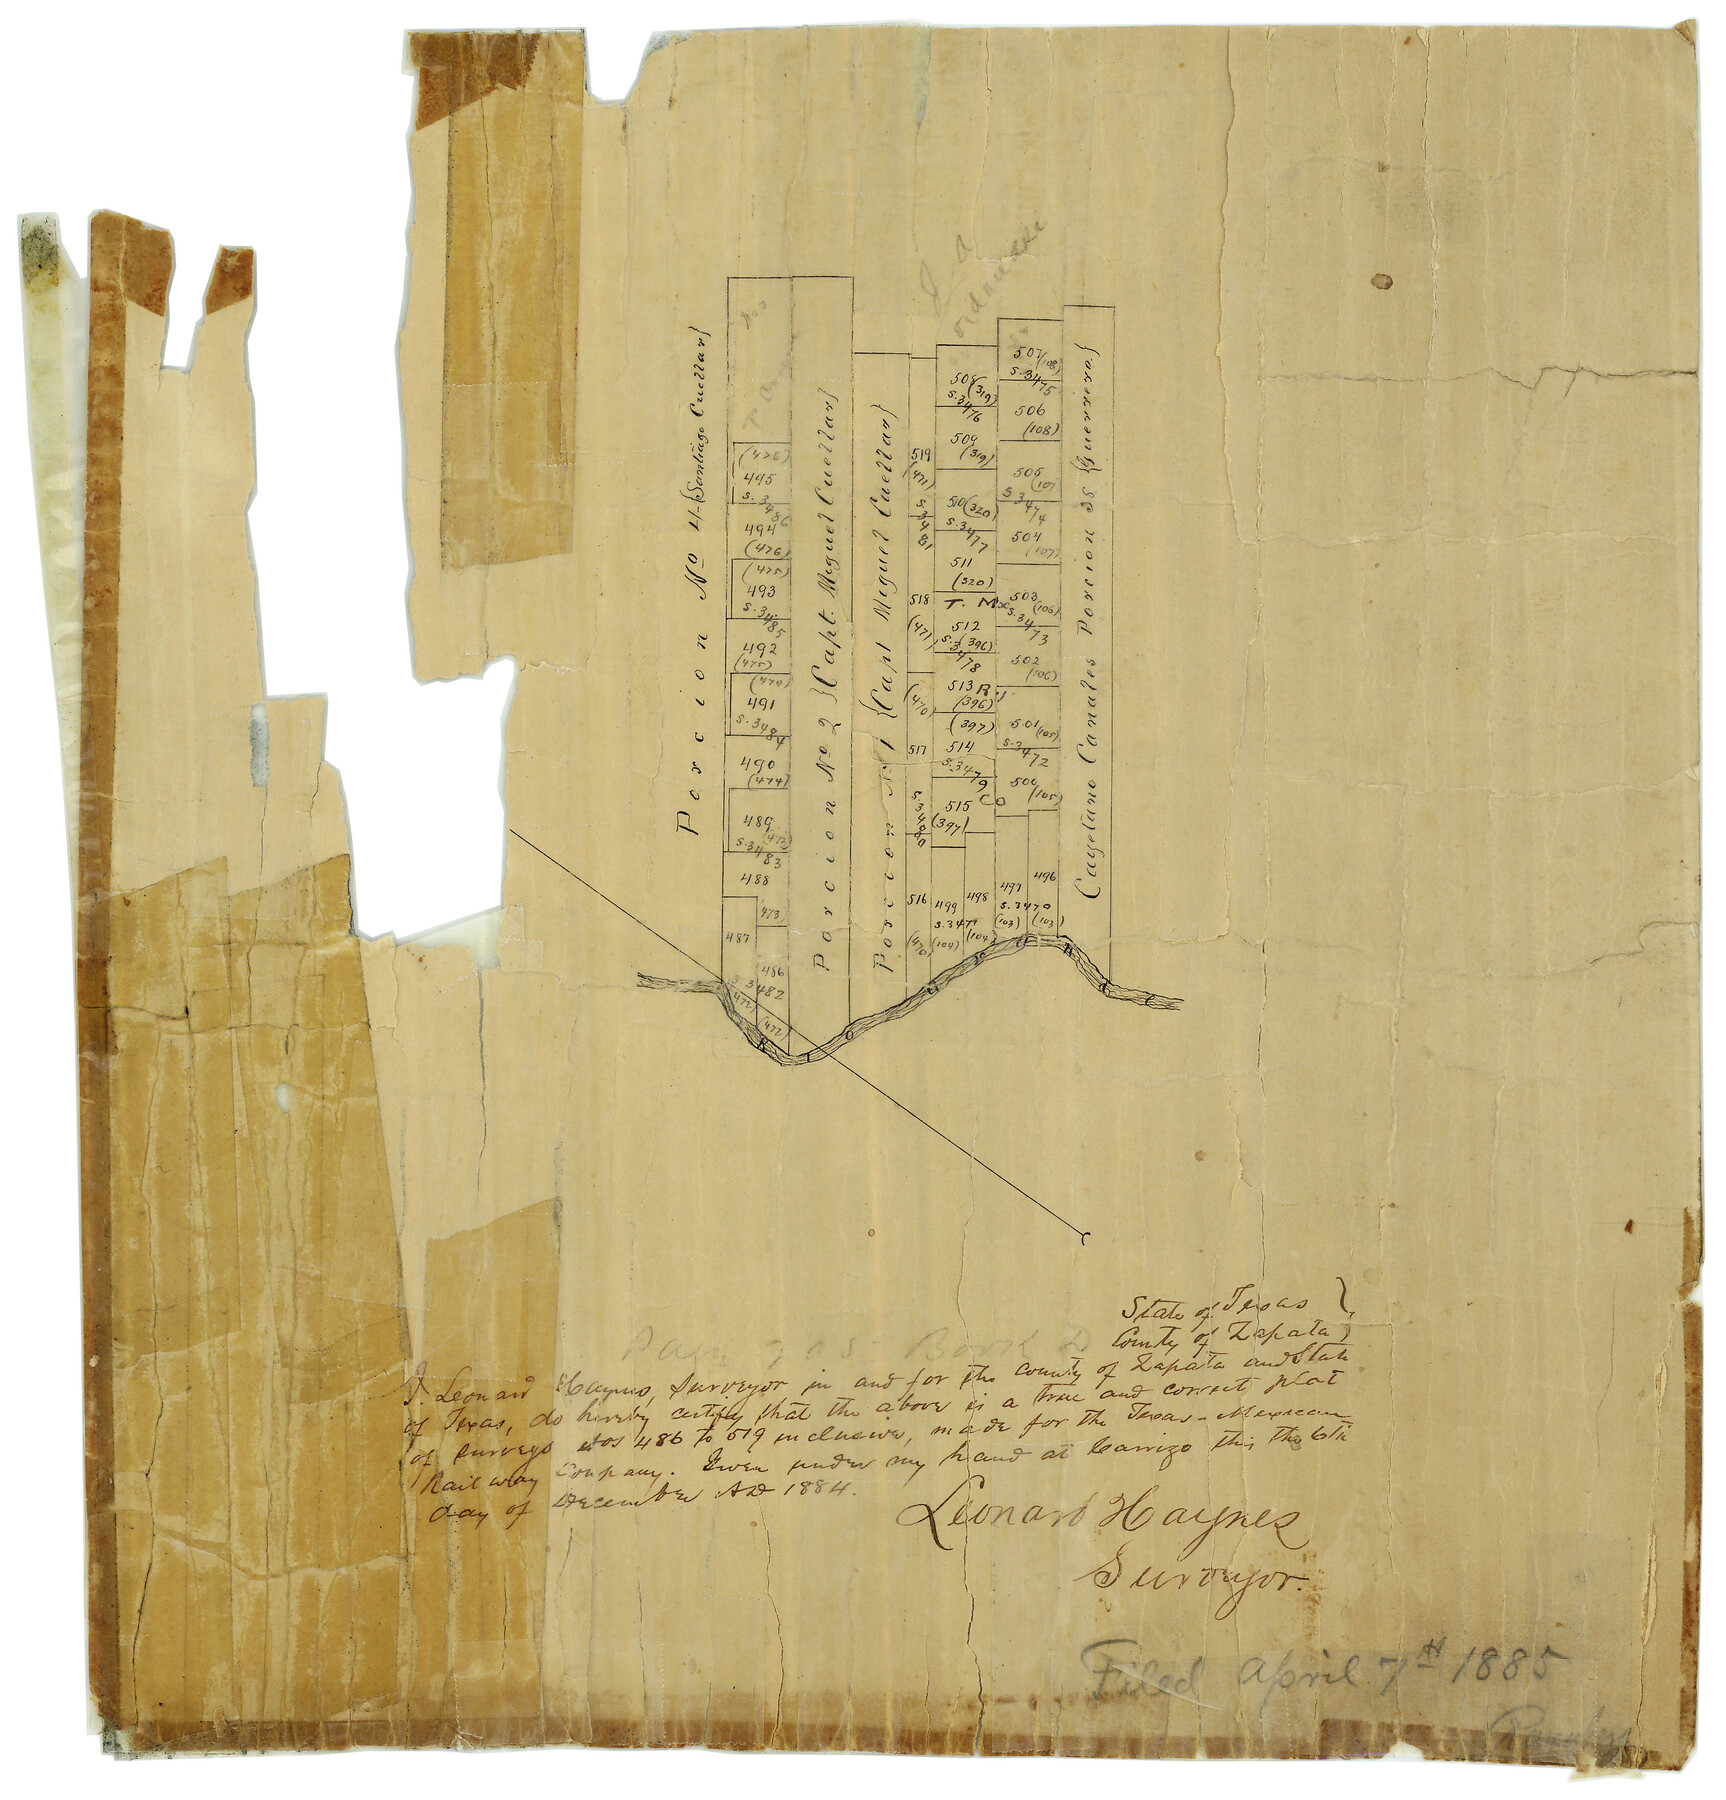 Porcion No 4 {Santiago Cuellar}
Porcion No 2 {Capt. Miguel Cuellar}
Porcion No 1 {Capt Miguel Cuellar}
Cayetano Canales Porcion 33 {Guerrero.}
(476)
495
S. 3486
494
(476)
(475)
493
S. 3485
492
(475)
(474)
491
S. 3484
490
(474)
489
(473)
S. 3483
488
(473)
487
486
S. 3482
(472)
(472)
519
(471)
S. 3481
518
(471)
(470)
517
S. 3480
516
(470)
508
(319)
S. 3476
509
(319)
510 (320)
S. 3477
511
(320)
T. Mex
512
S. 3478
(396)
513 R'y
(396)
(397)
514
S. 3479
515 Co
(397)
499
498
S. 3471
(104)
(104)
507
(108)
S. 3475
506
(108)
505
(107)
S. 3474
504
(107)
503
(106)
S. 3473
502
(106)
501
(105)
S. 3472
500
(105)
497
496
S. 3470
(103)
(103)
RIO
State of Texas }
County of Zapata }
I. Leonard Haynes, Surveyor in and for the County of Zapata and State
of Texas, do hereby certify that the above is a true and correct plat
of Surveys Nos 486 to 519 inclusive, made for the Texas-Mexican
Railway Company. Given under my hand at Carrizo this the 6th
day of December AD 1884.
Leonard Haynes
Surveyor.
Filed April 7th 1885